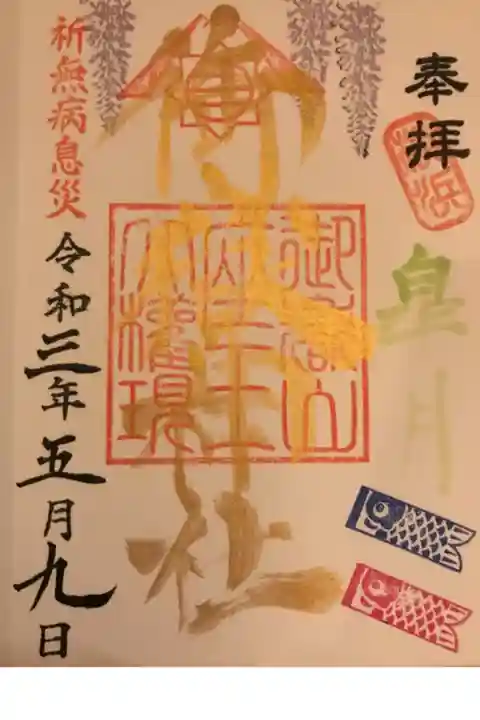 奉拝
横浜
皐月
御 社
御嶽山
大權現
祈無病息災
令和三年五月九日